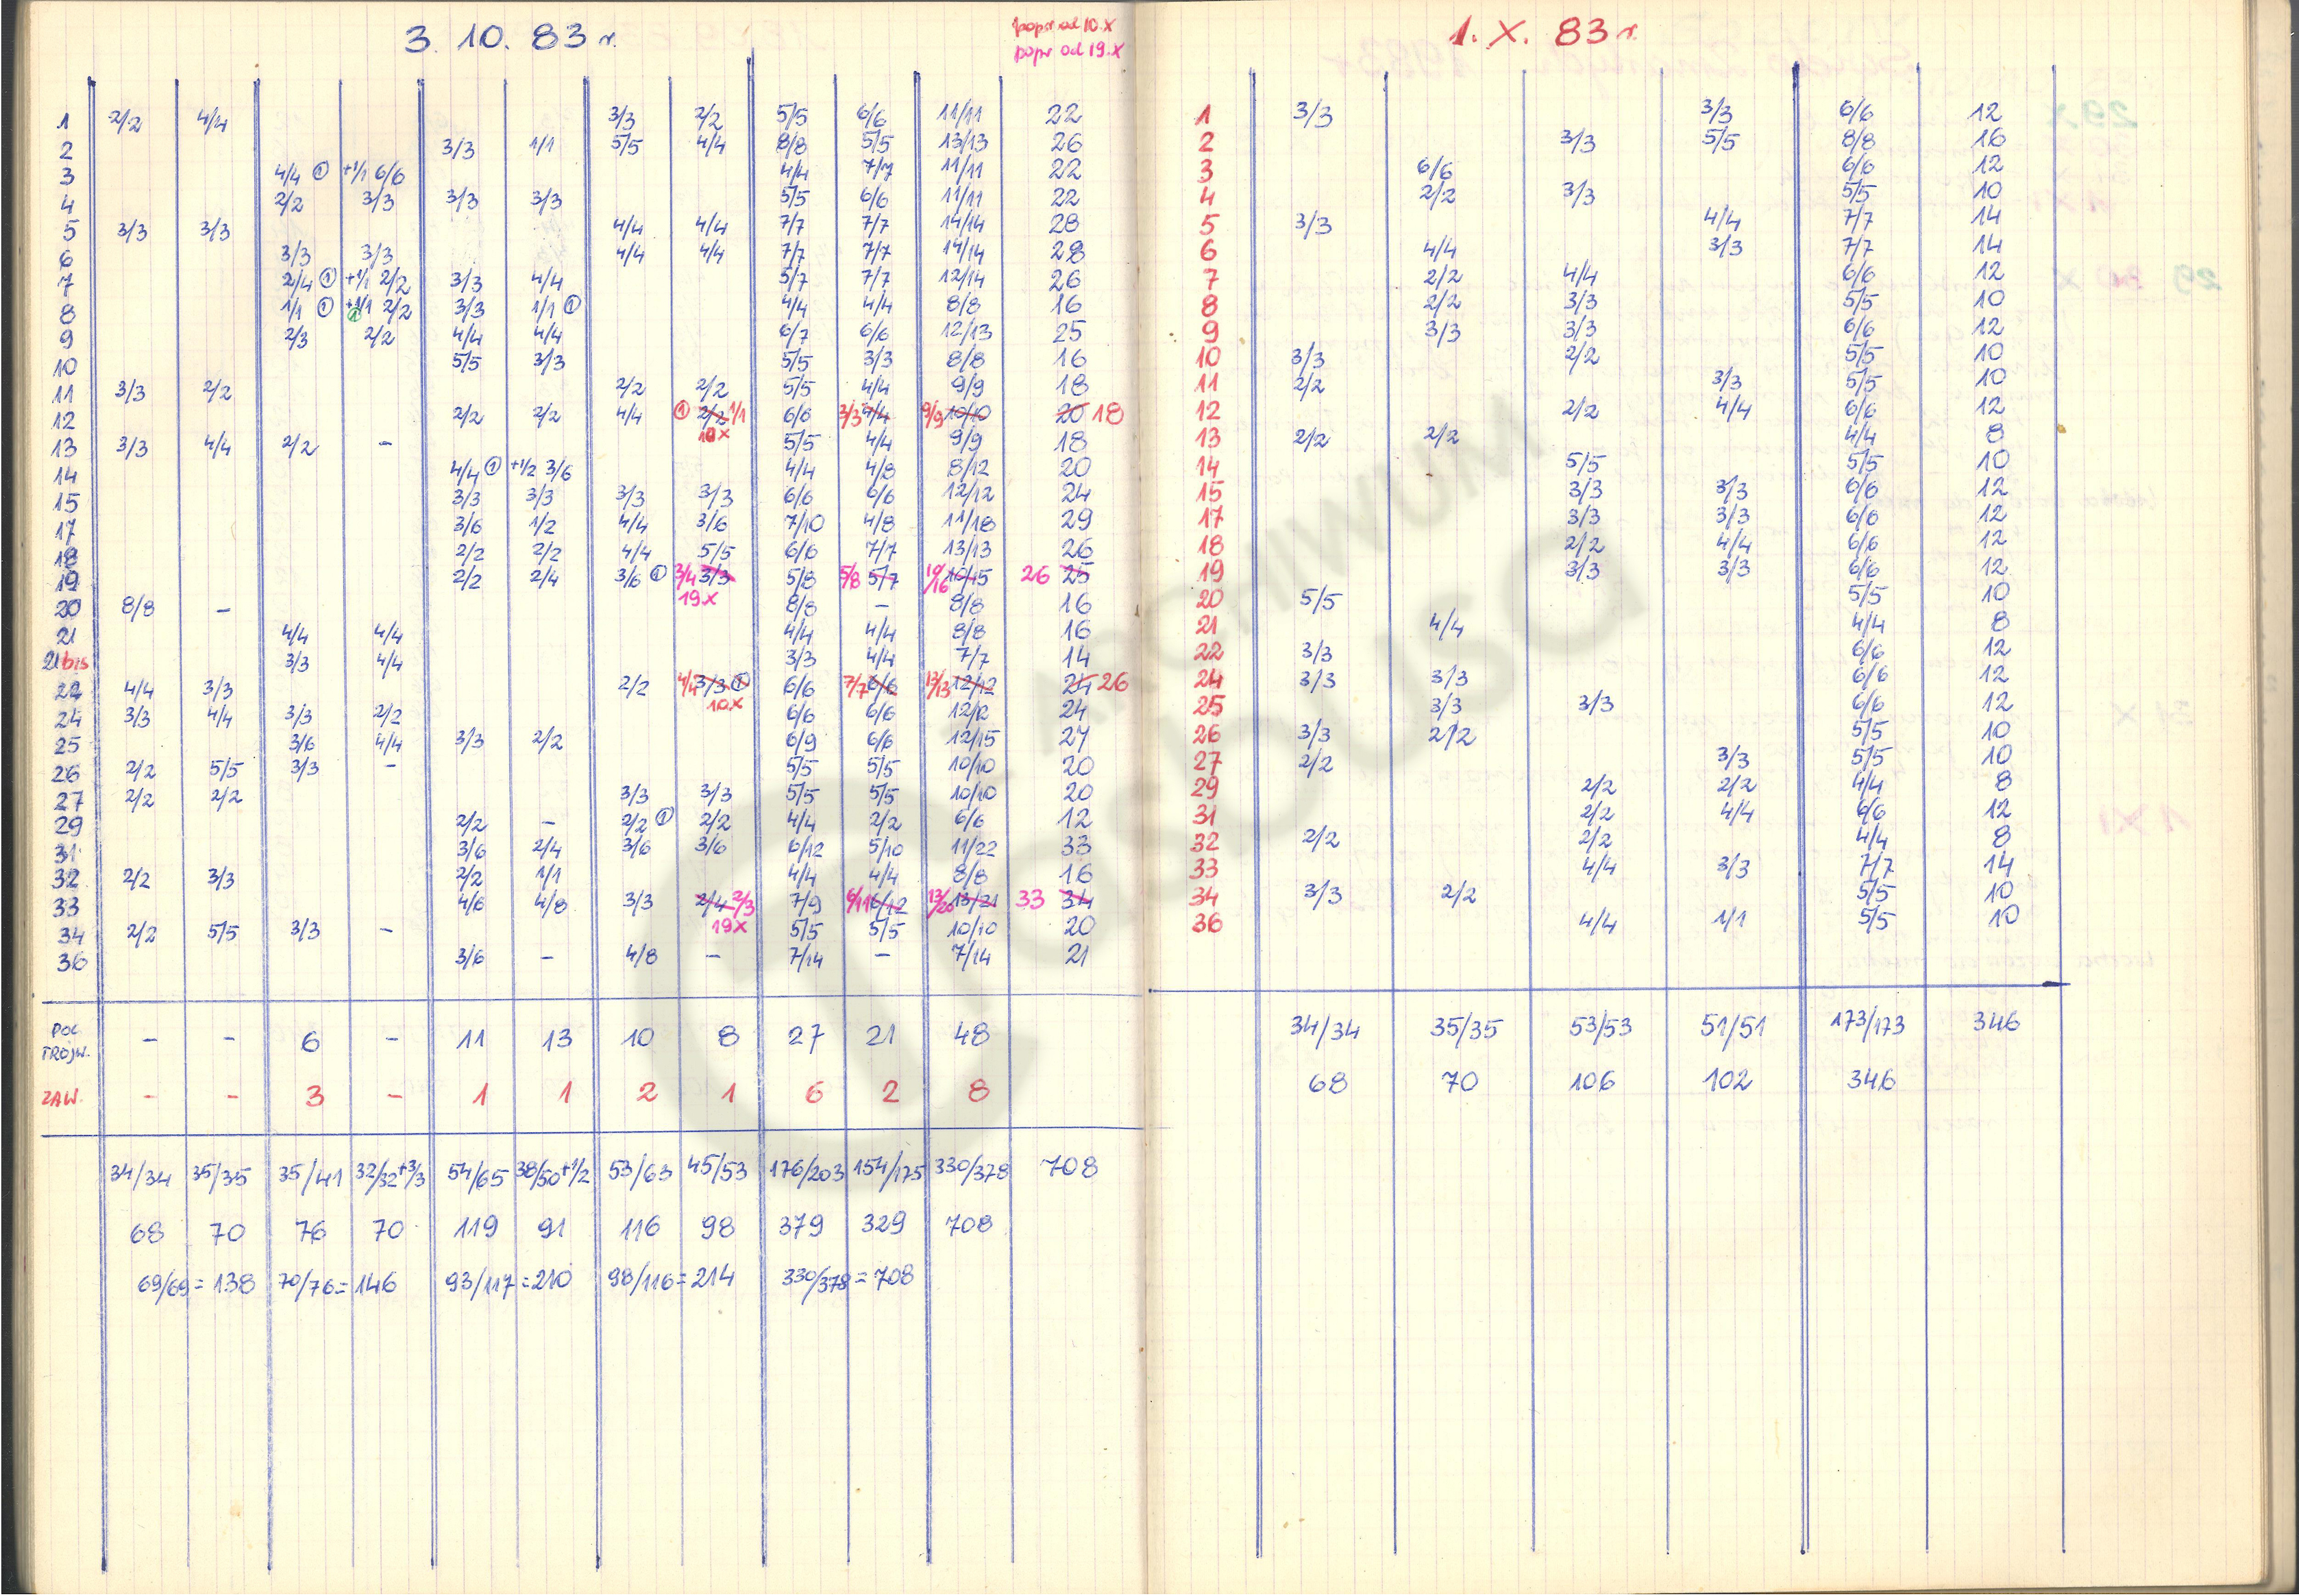 3. 10. 83 r.
popr od 10.X
popr od 19.X
1 2/2 4/4 3/3 2/2 5/5 6/6 11/11 22
2 3/3 1/1 5/5 4/4 8/8 5/5 13/13 26
3 4/4 ① +1/1 6/6 4/4 7/7 11/11 22
4 2/2 3/3 3/3 3/3 5/5 6/6 11/11 22
5 3/3 3/3 4/4 4/4 7/7 7/7 14/14 28
6 3/3 3/3 4/4 4/4 7/7 7/7 14/14 28
7 2/4 ① +1/1 2/2 3/3 4/4 5/7 7/7 12/14 26
8 1/1 ① +1/1 ① 2/2 3/3 1/1 ① 4/4 4/4 8/8 16
9 2/3 2/2 4/4 4/4 6/7 6/6 12/13 25
10 5/5 3/3 5/5 3/3 8/8 16
11 3/3 2/2 2/2 2/2 5/5 4/4 9/9 18
12 2/2 2/2 4/4 ① 2/2 1/1 6/6 3/3 4/4 9/9 10/10 20 18
10x
13 3/3 4/4 2/2 - 5/5 4/4 9/9 18
14 4/4 ① +1/2 3/6 4/4 4/8 8/12 20
15 3/3 3/3 3/3 3/3 6/6 6/6 12/12 24
17 3/6 1/2 4/4 3/6 7/10 4/8 11/18 29
18 2/2 2/2 4/4 5/5 6/6 7/7 13/13 26
19 2/2 2/4 3/6 ① 3/4 3/3 5/8 5/8 5/7 10/16 10/15 26 25
19x
20 8/8 - 8/8 - 8/8 16
21 4/4 4/4 4/4 4/4 8/8 16
21bis 3/3 4/4 3/3 4/4 7/7 14
22 4/4 3/3 2/2 4/4 3/3 ① 6/6 7/7 6/6 13/13 12/12 24 26
10x
24 3/3 4/4 3/3 2/2 6/6 6/6 12/12 24
25 3/6 4/4 3/3 2/2 6/9 6/6 12/15 27
26 2/2 5/5 3/3 - 5/5 5/5 10/10 20
27 2/2 2/2 3/3 3/3 5/5 5/5 10/10 20
29 2/2 - 2/2 ① 2/2 4/4 2/2 6/6 12
31 3/6 2/4 3/6 3/6 6/12 5/10 11/22 33
32 2/2 3/3 2/2 1/1 4/4 4/4 8/8 16
33 4/6 4/8 3/3 2/4 2/3 7/9 6/11 6/12 13/20 13/21 33 34
19x
34 2/2 5/5 3/3 - 5/5 5/5 10/10 20
36 3/6 - 4/8 - 7/14 - 7/14 21
POC. TRÓJW. - - 6 - 11 13 10 8 27 21 48
ZAW. - - 3 - 1 1 2 1 6 2 8
34/34 35/35 35/41 32/32+3/3 54/65 38/50+1/2 53/63 45/53 176/203 154/175 330/378 708
68 70 76 70 119 91 116 98 379 329 708
69/69=138 70/76=146 93/117=210 98/116=214 330/378=708
1. X. 83 r.
1 3/3 3/3 6/6 12
2 3/3 5/5 8/8 16
3 6/6 6/6 12
4 2/2 3/3 5/5 10
5 3/3 4/4 7/7 14
6 4/4 3/3 7/7 14
7 2/2 4/4 6/6 12
8 2/2 3/3 5/5 10
9 3/3 3/3 6/6 12
10 3/3 2/2 5/5 10
11 2/2 3/3 5/5 10
12 2/2 4/4 6/6 12
13 2/2 2/2 4/4 8
14 5/5 5/5 10
15 3/3 3/3 6/6 12
17 3/3 3/3 6/6 12
18 2/2 4/4 6/6 12
19 3/3 3/3 6/6 12
20 5/5 5/5 10
21 4/4 4/4 8
22 3/3 6/6 12
24 3/3 3/3 6/6 12
25 3/3 3/3 6/6 12
26 3/3 2/2 5/5 10
27 2/2 3/3 5/5 10
29 2/2 2/2 4/4 8
31 2/2 4/4 6/6 12
32 2/2 2/2 4/4 8
33 4/4 3/3 7/7 14
34 3/3 2/2 5/5 10
36 4/4 1/1 5/5 10
34/34 35/35 53/53 51/51 173/173 346
68 70 106 102 346